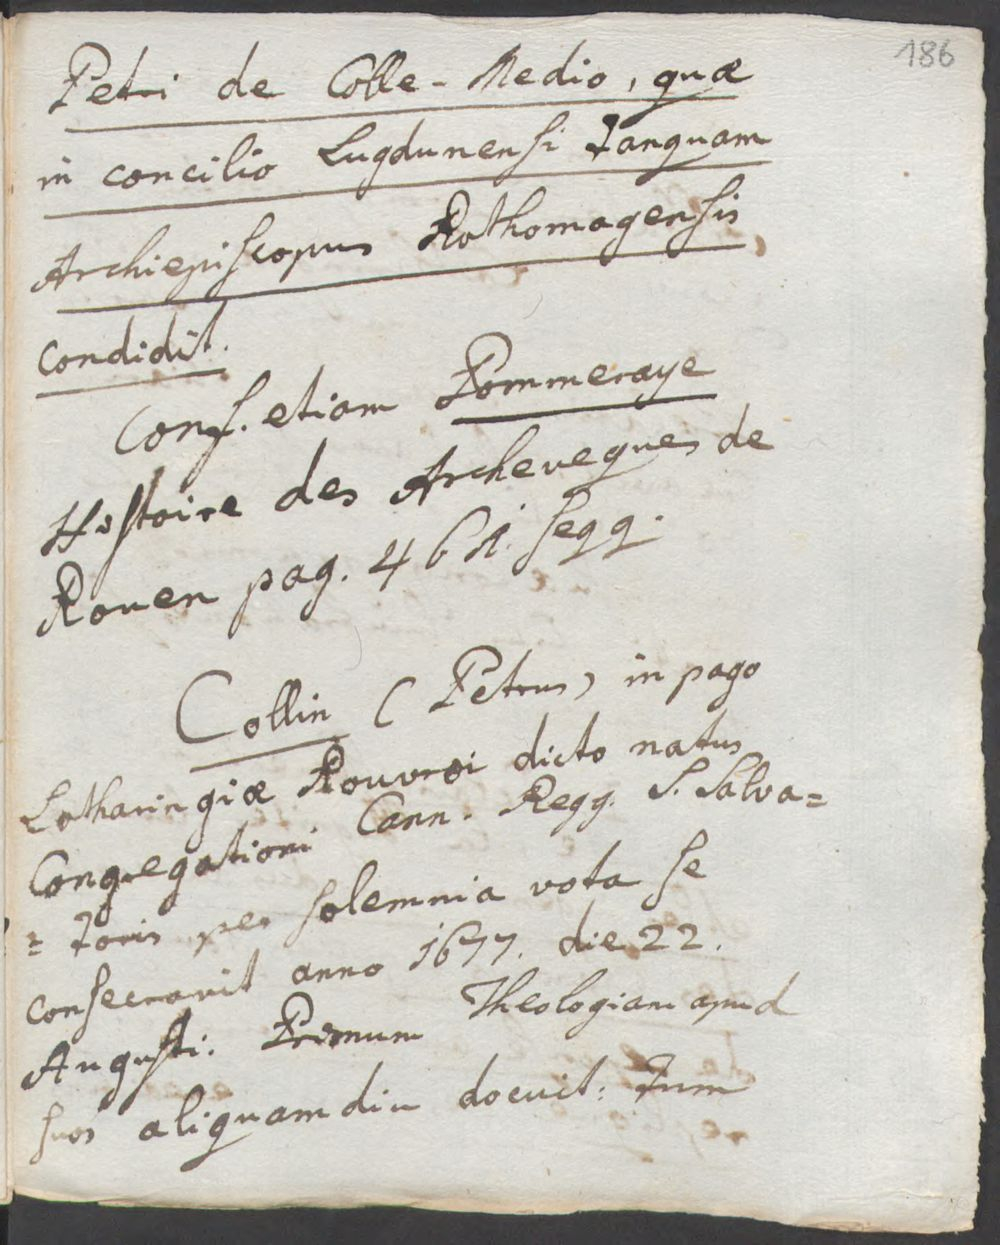 186
Petri de Colle-Medio, quæ
in concilio Lugdunensi tanquam
Archiepiscopus Rothomagensis
condidit.
Conf. etiam Pommeraye
Histoire des Archeveques de
Rouen pag. 461. seqq.
Collin (Petrus) in pago
Lotharingiæ Rouvroi dicto natus
Congregationi Cann. Regg. S. Salva=
=toris per solemnia vota se
consecravit anno 1677. die 22.
Augusti. Primum Theologiam apud
suos aliquamdiu docuit: Tum